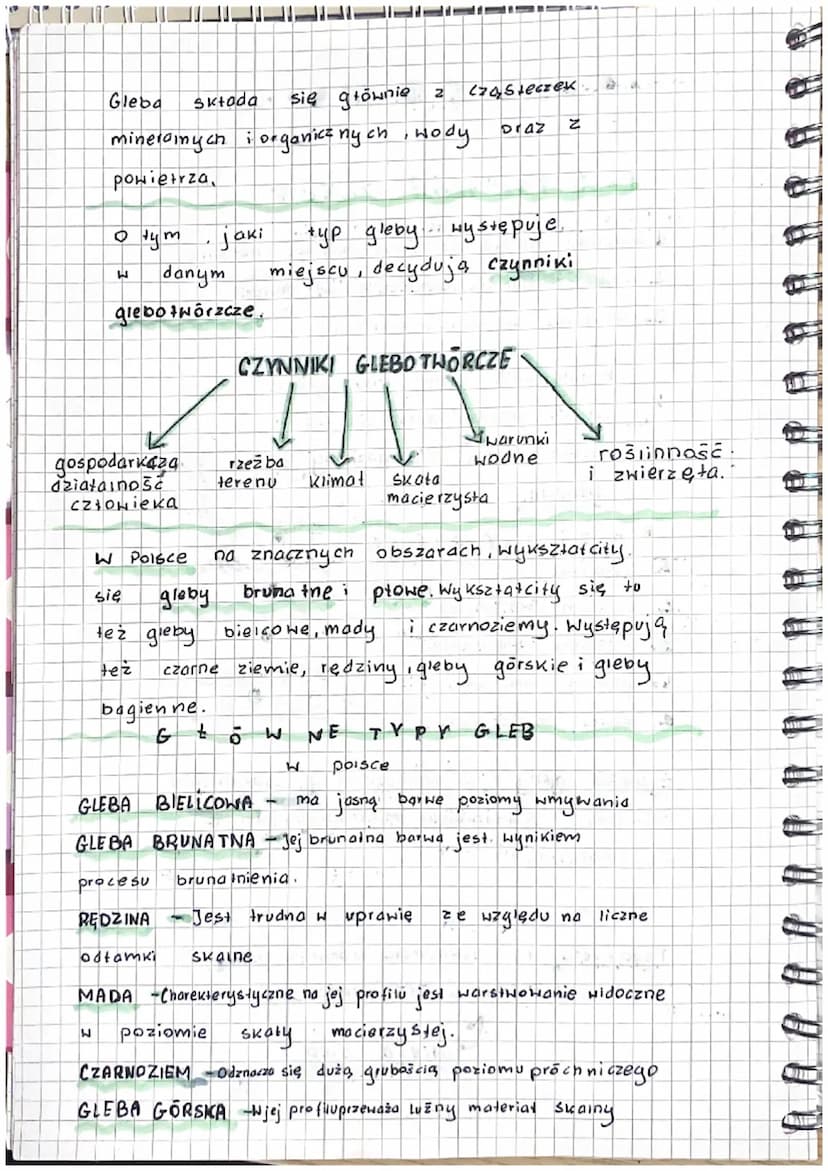 Gleba składa się głównie z cząsteczek
mineralnych i organicznych, wody oraz z
powietrza.
O tym, jaki typ gleby występuje
w danym miejscu, decydują czynniki
glebotwórzcze.
CZYNNIKI GLEBOTWÓRCZE
gospodarkcza działalność człowieka
rzeźba terenu
klimat
skała macierzysta
warunki wodne
roślinność i zwierzęta.
W Polsce na znacznych obszarach, wykształciły
się gleby brunatne i płowe. Wykształciły się tu
też gleby bielicowe, mady i czarnoziemy. Występują
też czarne ziemie, rędziny, gleby górskie i gleby
bagienne.
GŁÓWNE TYPY GLEB
w polsce
GLEBA BIELICOWA - ma jasną barwe poziomy wmywania
GLEBA BRUNATNA - Jej brunatna barwa jest wynikiem
procesu brunatnienia.
RĘDZINA - Jest trudna w uprawię ze względu na liczne
odłamki skalne
MADA - Charekterystyczne na jej profilu jest warstwowanie widoczne
w poziomie skały macierzystej.
CZARNOZIEM - Odznacza się dużą grubością poziomu próchniczego
GLEBA GÓRSKA - W jej profilu przeważa luźny materiał skalny